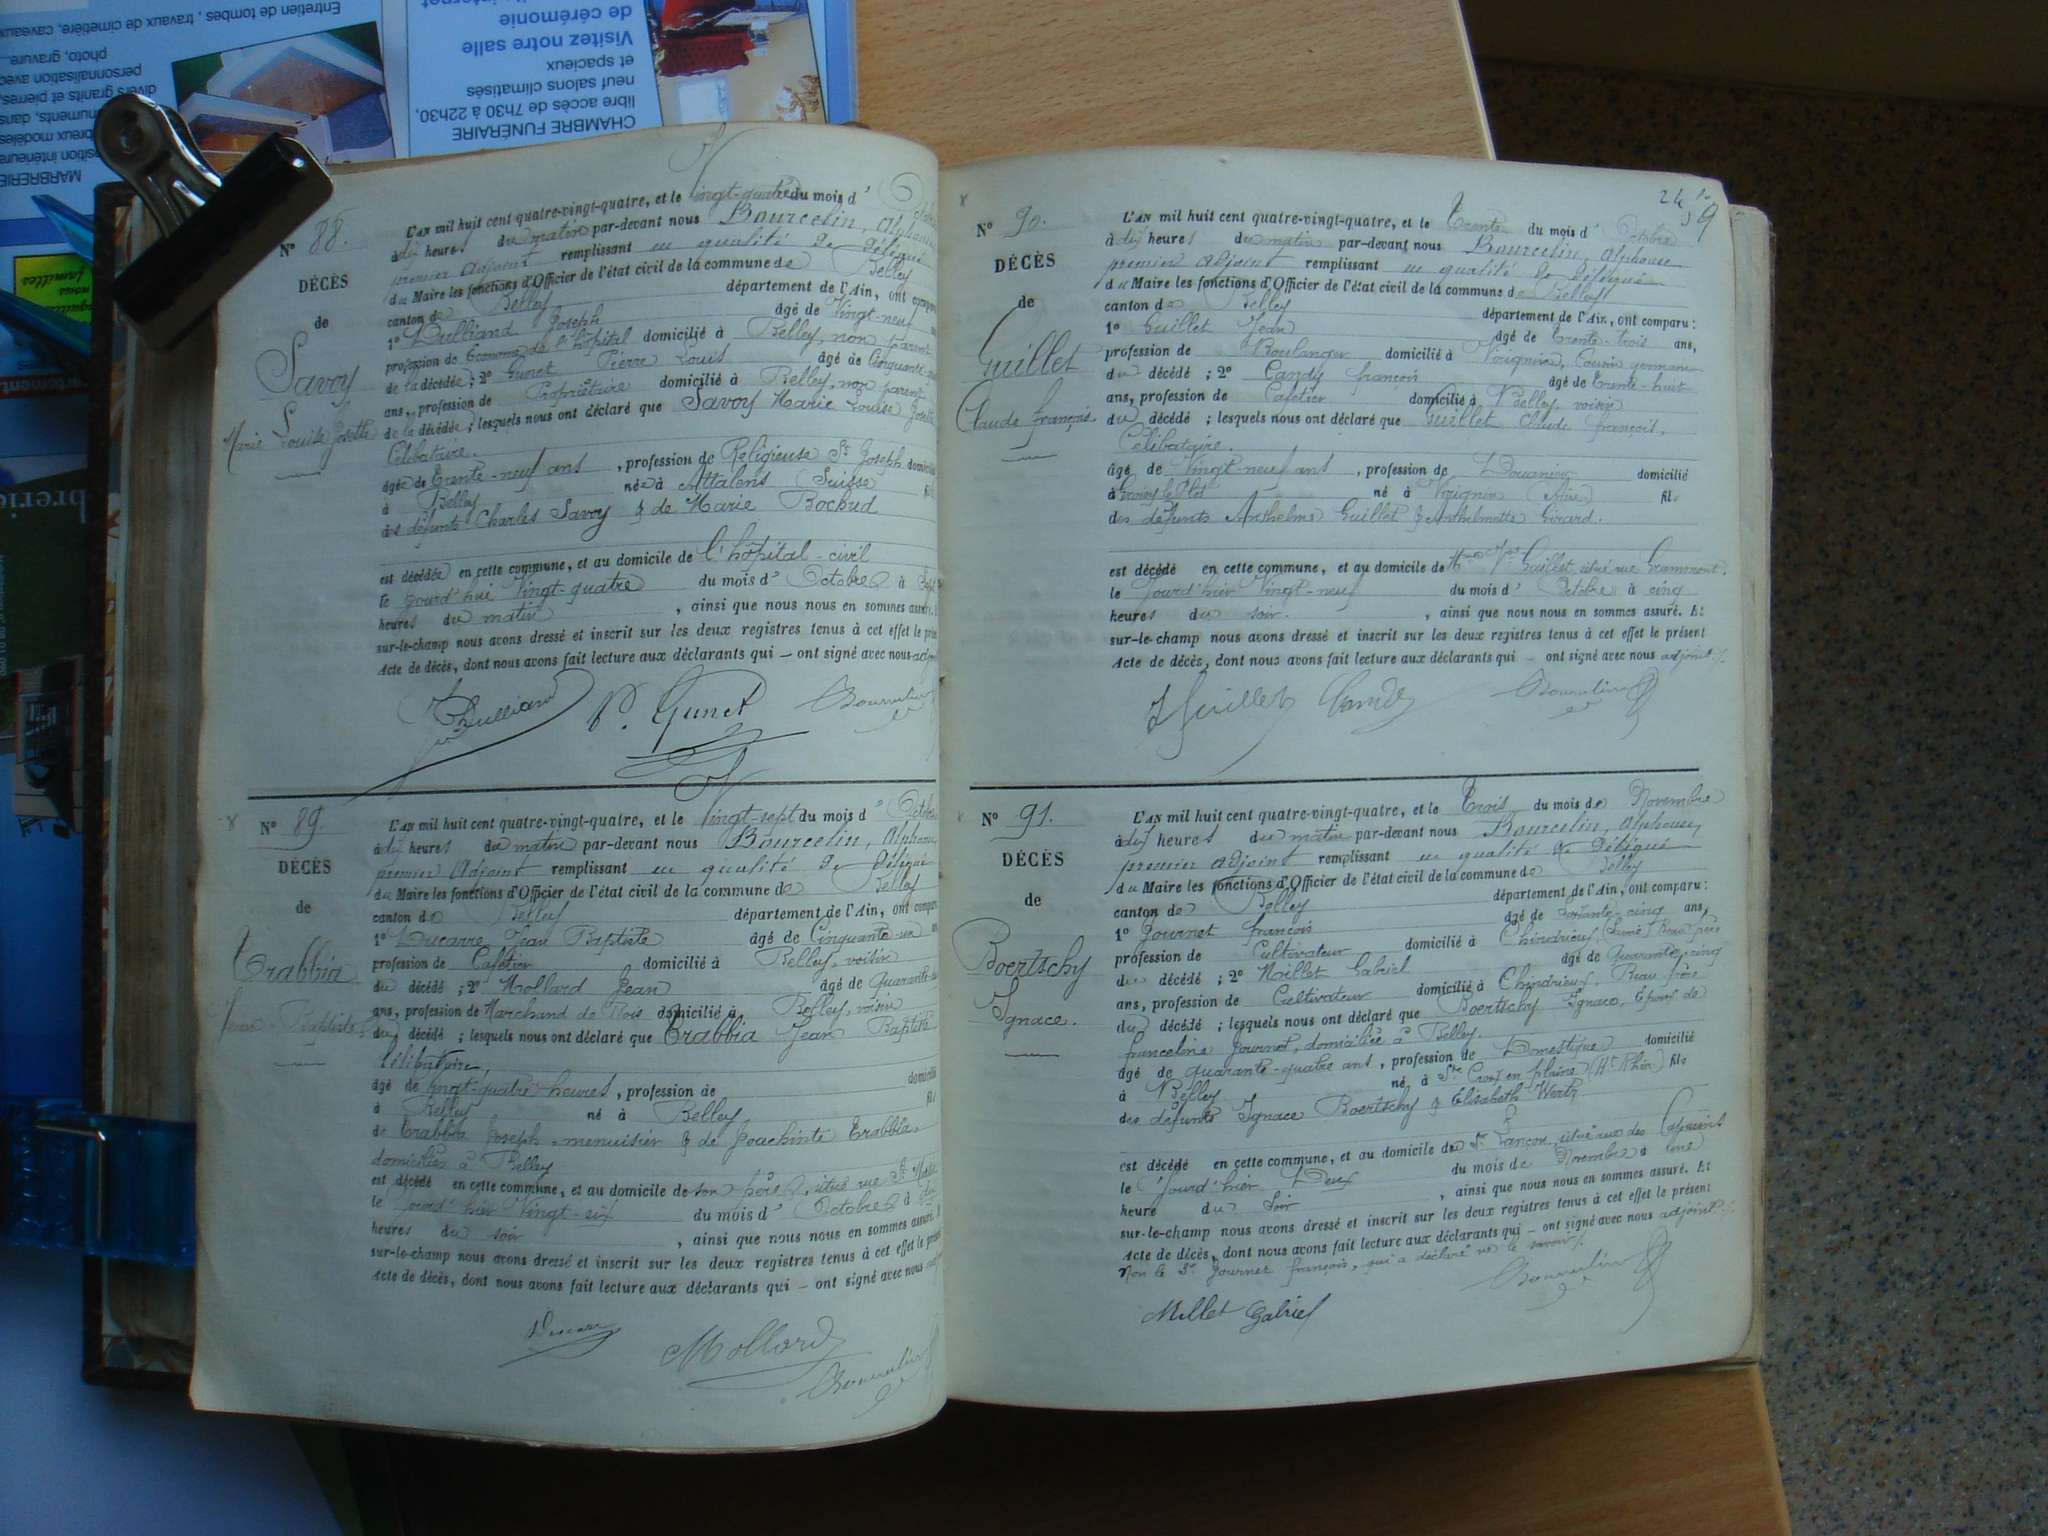 Entretien de tombes, travaux de cimetière, caveaux
photo, gravure.
personnalisation avec
divers granits et pierres,
numents, dans
breux modèles
position intérieure
MARBRERIE
de cérémonie
Visitez notre salle
et spacieux
neuf salons climatisés
libre accès de 7h30 à 22h30,
CHAMBRE FUNÉRAIRE
N° 88.
DÉCÈS
de
Savoy
Marie Louise Josette
L'AN mil huit cent quatre-vingt-quatre, et le vingt-quatre du mois d'
à dix heures du matin par-devant nous Bourcelin, Alphonse
premier adjoint remplissant en qualité de délégué
du Maire les fonctions d'Officier de l'état civil de la commune de Belley
canton de Belley département de l'Ain, ont comparu
1° Joseph âgé de Vingt-neuf
profession de Econome de l'hôpital domicilié à Belley, non parent
de la décédée ; 2° Gunet Pierre Louis âgé de Cinquante
ans, profession de Propriétaire domicilié à Belley, non parent
de la décédée ; lesquels nous ont déclaré que Savoy Marie Louise Josette
Célibataire.
âgée de Trente-neuf ans, profession de Religieuse St Joseph domicilié
à Belley née à Attalens (Suisse fil
des défunts Charles Savoy & de Marie Bochud
est décédée en cette commune, et au domicile de l'hôpital-civil
le jourd'hui Vingt-quatre du mois d'Octobre à Sept
heures du matin, ainsi que nous nous en sommes assuré.
sur-le-champ nous avons dressé et inscrit sur les deux registres tenus à cet effet le prés
Acte de décès, dont nous avons fait lecture aux déclarants qui — ont signé avec nous adj
P. Gunet Bourcelin
N° 89.
DÉCÈS
de
Trabbia
Jean-Baptiste
L'AN mil huit cent quatre-vingt-quatre, et le Vingt-sept du mois d'Octobre
à dix heures du matin par-devant nous Bourcelin, Alphonse
premier Adjoint remplissant en qualité de délégué
du Maire les fonctions d'Officier de l'état civil de la commune de Belley
canton de Belley département de l'Ain, ont comparu
1° Ducarre Jean Baptiste âgé de Cinquante-un
profession de Cafetier domicilié à Belley, voisin
du décédé ; 2° Mollard Jean âgé de Quarante
ans, profession de Marchand de Bois domicilié à Belley, voisin
du décédé ; lesquels nous ont déclaré que Trabbia Jean Baptiste
Célibataire
âgé de vingt-quatre heures, profession de domicilié
à Belley né à Belley fil
de Trabbia Joseph, menuisier & de Joachinte Trabbia
domiciliés à Belley
est décédé en cette commune, et au domicile de son père, situé rue
le jourd'hier Vingt-six du mois d'Octobre à dix
heures du soir, ainsi que nous nous en sommes assuré.
sur-le-champ nous avons dressé et inscrit sur les deux registres tenus à cet effet le prése
Acte de décès, dont nous avons fait lecture aux déclarants qui — ont signé avec nous
Ducarre Mollard
Bourcelin
N° 90.
DÉCÈS
de
Guillet
Claude François
L'AN mil huit cent quatre-vingt-quatre, et le Trente du mois d'Octobre
à dix heures du matin par-devant nous Bourcelin, Alphonse
premier adjoint remplissant en qualité de délégué
du Maire les fonctions d'Officier de l'état civil de la commune de Belley
canton de Belley département de l'Ain, ont comparu :
1° Guillet Jean âgé de Trente-trois ans,
profession de Boulanger domicilié à Virignin, Cousin germain
du décédé ; 2° Candy François âgé de Trente-huit
ans, profession de Cafetier domicilié à Belley, voisin
du décédé ; lesquels nous ont déclaré que Guillet Claude François,
Célibataire.
âgé de Vingt-neuf ans, profession de Douanier domicilié
à né à Virignin (Ain) fils
des défunts Anthelme Guillet & Anthelmette Girard.
est décédé en cette commune, et au domicile de Mme Vve Guillet, situé rue Grammont.
le Jourd'hier Vingt-neuf du mois d'Octobre à cinq
heures du soir., ainsi que nous nous en sommes assuré. Et
sur-le-champ nous avons dressé et inscrit sur les deux registres tenus à cet effet le présent
Acte de décès, dont nous avons fait lecture aux déclarants qui — ont signé avec nous adjoint
J Guillet Candy Bourcelin
N° 91.
DÉCÈS
de
Boertschy
Ignace.
L'AN mil huit cent quatre-vingt-quatre, et le Trois du mois de Novembre
à dix heures du matin par-devant nous Bourcelin, Alphonse,
premier adjoint remplissant en qualité de Délégué
du Maire les fonctions d'Officier de l'état civil de la commune de Belley
canton de Belley département de l'Ain, ont comparu :
1° Journet François âgé de soixante-cinq ans,
profession de Cultivateur domicilié à Chindrieux, Beau père
du décédé ; 2° Millet Gabriel âgé de Quarante-cinq
ans, profession de Cultivateur domicilié à Chindrieux, Beau-frère
du décédé ; lesquels nous ont déclaré que Boertschy Ignace, Epoux de
Franceline Journet, domiciliée à Belley.
âgé de quarante-quatre ans, profession de Domestique domicilié
à Belley né à Ste Croix en plaine (Ht Rhin) fils
des défunts Ignace Boertschy & Elisabeth Wertz
est décédé en cette commune, et au domicile de Sr Lançon, situé rue des Capucins
le Jourd'hier Deux du mois de Novembre à une
heure du Soir, ainsi que nous nous en sommes assuré. Et
sur-le-champ nous avons dressé et inscrit sur les deux registres tenus à cet effet le présent
Acte de décès, dont nous avons fait lecture aux déclarants qui — ont signé avec nous adjoint
Non le Sr Journet François, qui a déclaré ne le savoir.
Bourcelin
Millet Gabriel